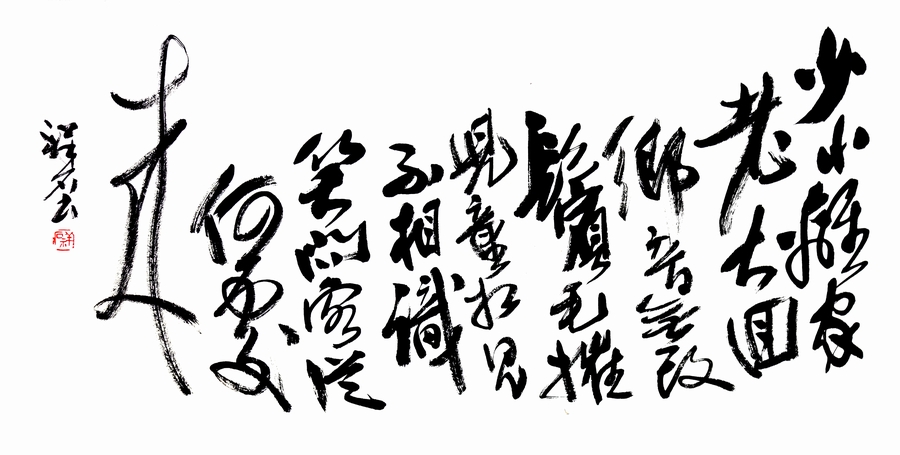 少小離家
老大回
鄉音無改
鬢毛摧
兒童相見
不相識
笑問客從
何處
來